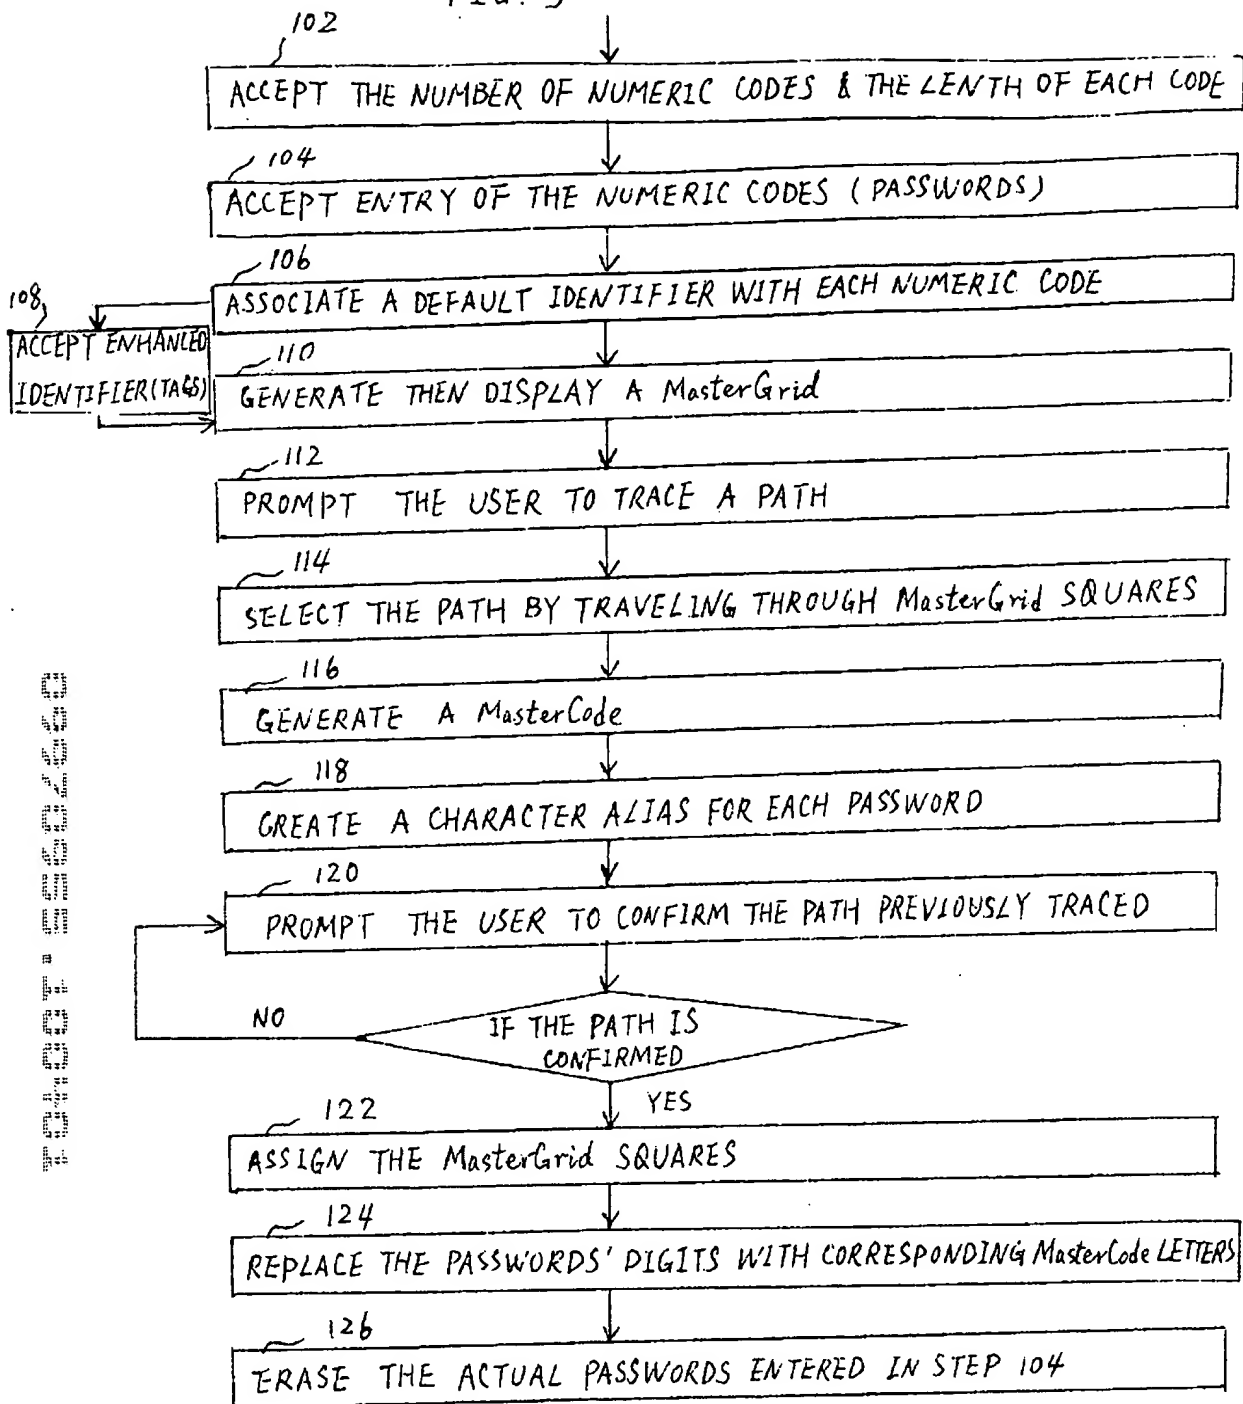 102
ACCEPT THE NUMBER OF NUMERIC CODES & THE LENTH OF EACH CODE
104
ACCEPT ENTRY OF THE NUMERIC CODES (PASSWORDS)
106
ASSOCIATE A DEFAULT IDENTIFIER WITH EACH NUMERIC CODE
108
ACCEPT ENHANCED
IDENTIFIER (TAGS)
110
GENERATE THEN DISPLAY A MasterGrid
112
PROMPT THE USER TO TRACE A PATH
114
SELECT THE PATH BY TRAVELING THROUGH MasterGrid SQUARES
116
GENERATE A MasterCode
118
CREATE A CHARACTER ALIAS FOR EACH PASSWORD
120
PROMPT THE USER TO CONFIRM THE PATH PREVIOUSLY TRACED
IF THE PATH IS
CONFIRMED
NO
YES
122
ASSIGN THE MasterGrid SQUARES
124
REPLACE THE PASSWORDS' DIGITS WITH CORRESPONDING MasterCode LETTERS
126
ERASE THE ACTUAL PASSWORDS ENTERED IN STEP 104